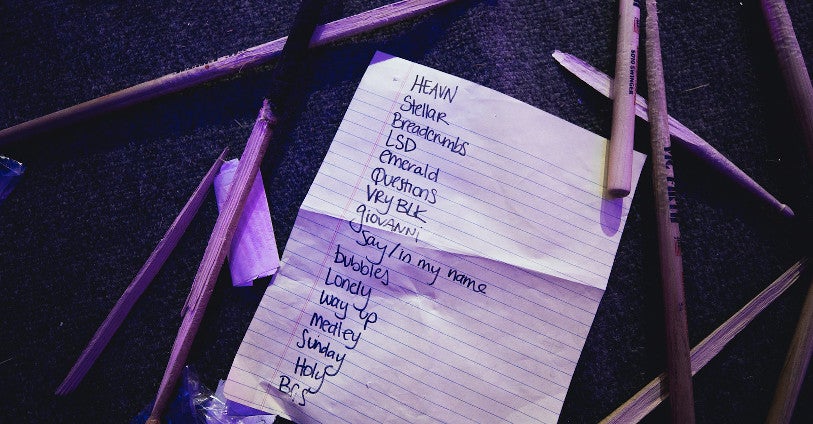 HEAVN
Stellar
Breadcrumbs
LSD
emerald
Questions
VRY BLK
giovanni
Say/in my name
bubbles
Lonely
Way up
medley
Sunday
Holy